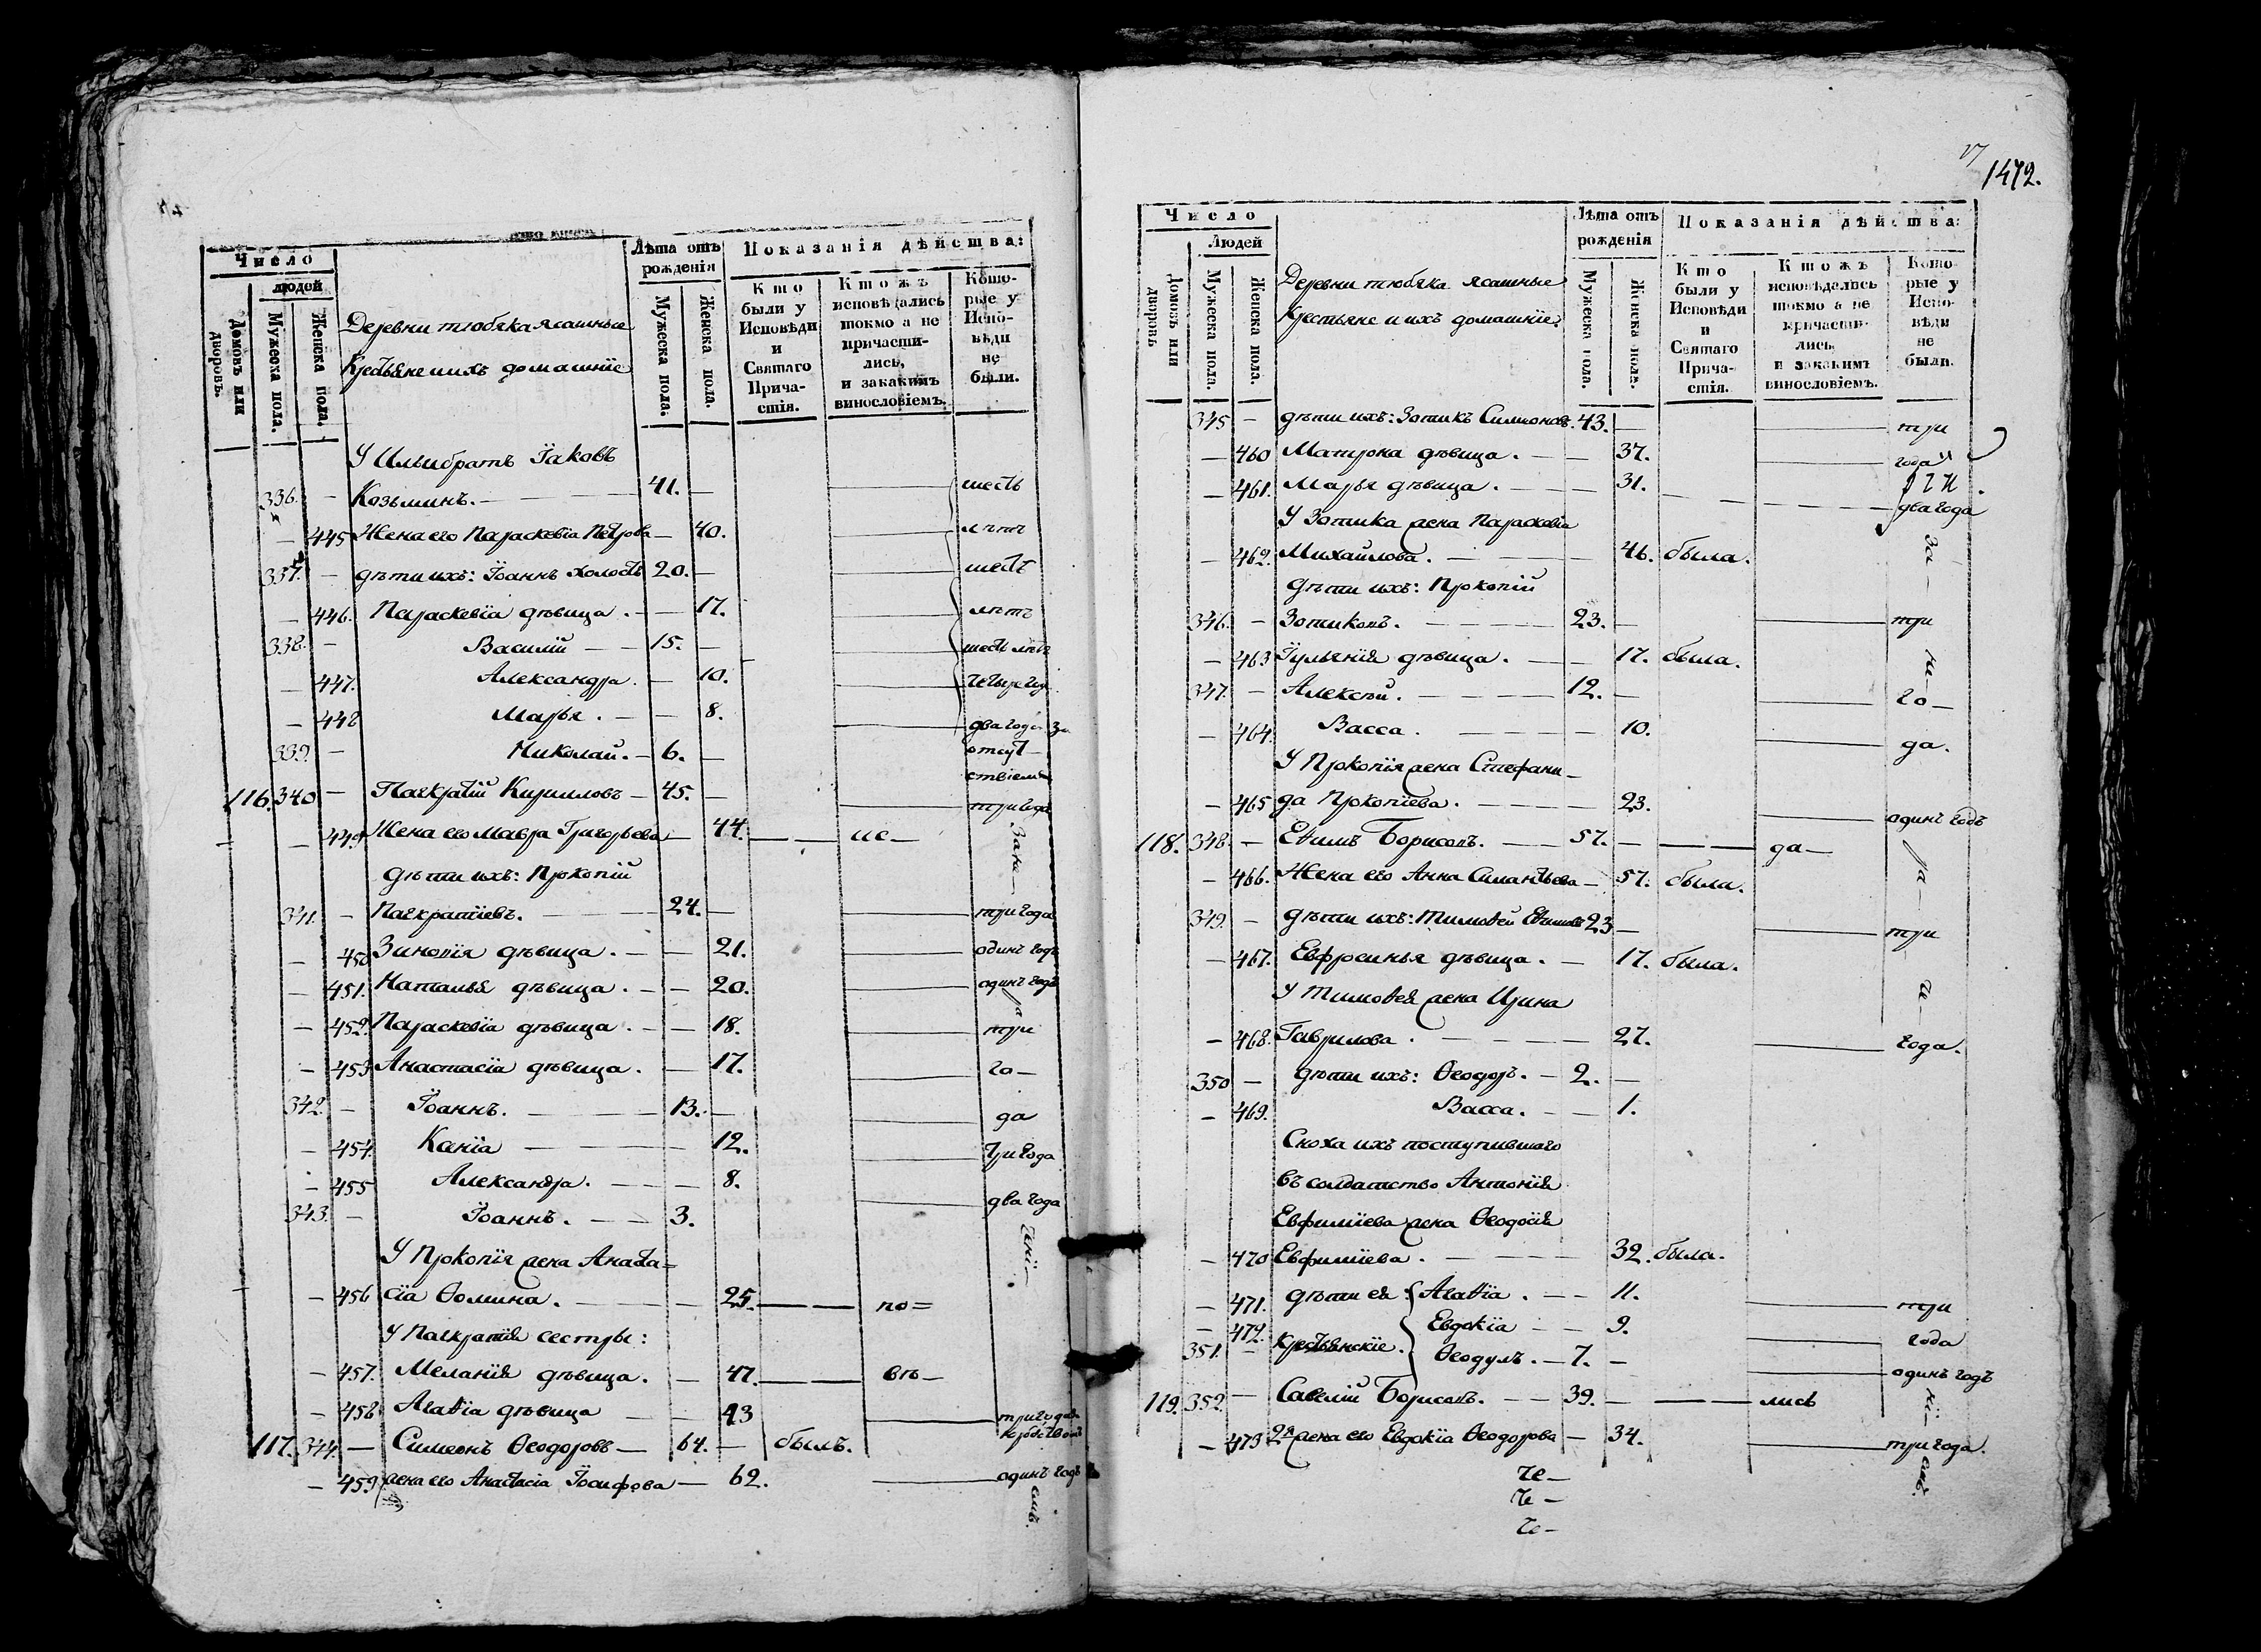 Число
людей
Домовъ или дворовъ.
Мужеска пола.
Женска пола.
Деревни тюбяка ясашные
Крестьяне и ихъ домашнïе
Лѣта отъ рожденія
Мужеска пола.
Женска пола.
Показанія дѣйства:
Кто были у Исповѣди и Святаго Причастія.
Ктожъ исповѣдались токмо а не причастились, и закакимъ винословіемъ.
Которые у Исповѣди не были.
У Ильи братъ Ïаковъ
336. - Козьминъ. - 41. - шесть
- 445 Жена его Параскевïа Петрова - 40. лѣтъ
337. - дѣти ихъ: Ïоаннъ холостъ 20. - шесть
- 446. Параскевïа дѣвица. - - 17. лѣтъ
338. - Василïй - - 15. - шесть лѣтъ
- 447. Александра. - 10.
- 448 Марья. - - 8. два года за
339. - Николай. - 6. - отсут-
ствïемъ
116. 340 - Панкратïй Кирилловъ - 45. - три года
- - 449 Жена его Мавра Григорьева - 44. - - ис-
дѣти ихъ: Прокопïй
341. - Панкратïевъ. - 24. - три года
- 450 Зиновïя дѣвица. - - 21. одинъ годъ
- 451. Наталья дѣвица. - - 20. одинъ годъ
- 452. Параскевïа дѣвица. - - 18. три
- 453 Анастасïа дѣвица. - 17. го-
342. - Ïоаннъ. - 13. - да
- 454. Ксенïа - 12. три года
- 455 Александра. - - - 8. два года
343. - Ïоаннъ. - - 3.
У Прокопïя жена Анаста=
- - 456 сïа Ѳомина. - 25. - - по=
У Панкратïя сестры:
- 457. Меланïя дѣвица. - 47. - - вѣ-
- 458 Агаѳïа дѣвица - - 43 три года
117. 344. - Симеонъ Ѳеодоровъ - 64. - былъ.
- 459. жена его Анастасïа Ïосифова - 62. одинъ годъ
1472.
Число
Людей
Домовъ или дворовъ
Мужеска пола.
Женска пола.
Деревни тюбяка ясашные
Крестьяне и ихъ домашнïе.
Лѣта отъ рожденія
Мужеска пола.
Женска пола.
Показанія дѣйства:
Кто были у Исповѣди и Святаго Причастія.
Ктожъ исповѣдались токмо а не причастились, и закакимъ винословіемъ.
Которые у Исповѣди не были.
345 - дѣти ихъ: Зотикъ Симеоновъ. 43. - три
- 460 Матрона дѣвица. - - 37. года
- 461. Марья дѣвица. - - 31.
два года
У Зотика жена Параскевïа
- 462. Михайлова. - - 46. была.
За-
дѣти ихъ: Прокопïй
346. - Зотиковъ. - 23. - три
- 463 Ïульянïя дѣвица. - - 17. была.
347. - Алексѣй. - 12. - го-
- 464. Васса. - - 10. да.
У Прокопïя жена Стефани-
- 465 да Прокопïева. - 23. одинъ годъ
118. 348. - Еѳимъ Борисовъ. - - 57. - - - да-
- 466. Жена его Анна Силантьева - 57. была.
349. - дѣти ихъ: Тимоѳей Еѳимовъ 23 - три
- 467. Евфросинья дѣвица. - 17. была.
У Тимоѳея жена Ирина
- 468. Гаврилова. - 27. года.
350 - дѣти ихъ: Ѳеодоръ. - 2. -
- 469. Васса. - - 1.
Сноха ихъ поступившаго
въ солдатство Антонïя
Евфимïева жена Ѳеодосïя
- 470 Евфимïева. - 32. была.
- 471. дѣти ея: Агаѳïа. - - 11. три
- 472. Евдокïа - - 9. года
351. - Крестьянскïе. Ѳеодулъ. - 7. - одинъ годъ
119. 352. - Савелïй Борисовъ. - - 39. - - - лись
- 473 2я жена его Евдокïа Ѳеодорова - 34. три года.
че-
че-
че-